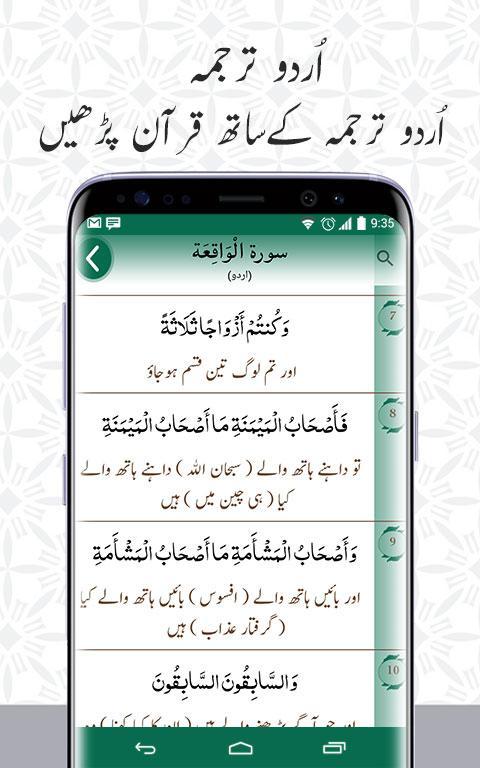 اُردو ترجمہ
اُردو ترجمہ کے ساتھ قرآن پڑھیں
9:35
سورة الْوَاقِعَة
(اردو)
7
وَكُنتُمْ أَزْوَاجًا ثَلَاثَةً
اور تم لوگ تین قسم ہوجاؤ
8
فَأَصْحَابُ الْمَيْمَنَةِ مَا أَصْحَابُ الْمَيْمَنَةِ
تو داہنے ہاتھ والے ( سبحان اللہ ) داہنے ہاتھ والے
کیا ( ہی چین میں ) ہیں
9
وَأَصْحَابُ الْمَشْأَمَةِ مَا أَصْحَابُ الْمَشْأَمَةِ
اور بائیں ہاتھ والے ( افسوس ) بائیں ہاتھ والے کیا
( گرفتار عذاب ) ہیں
10
وَالسَّابِقُونَ السَّابِقُونَ